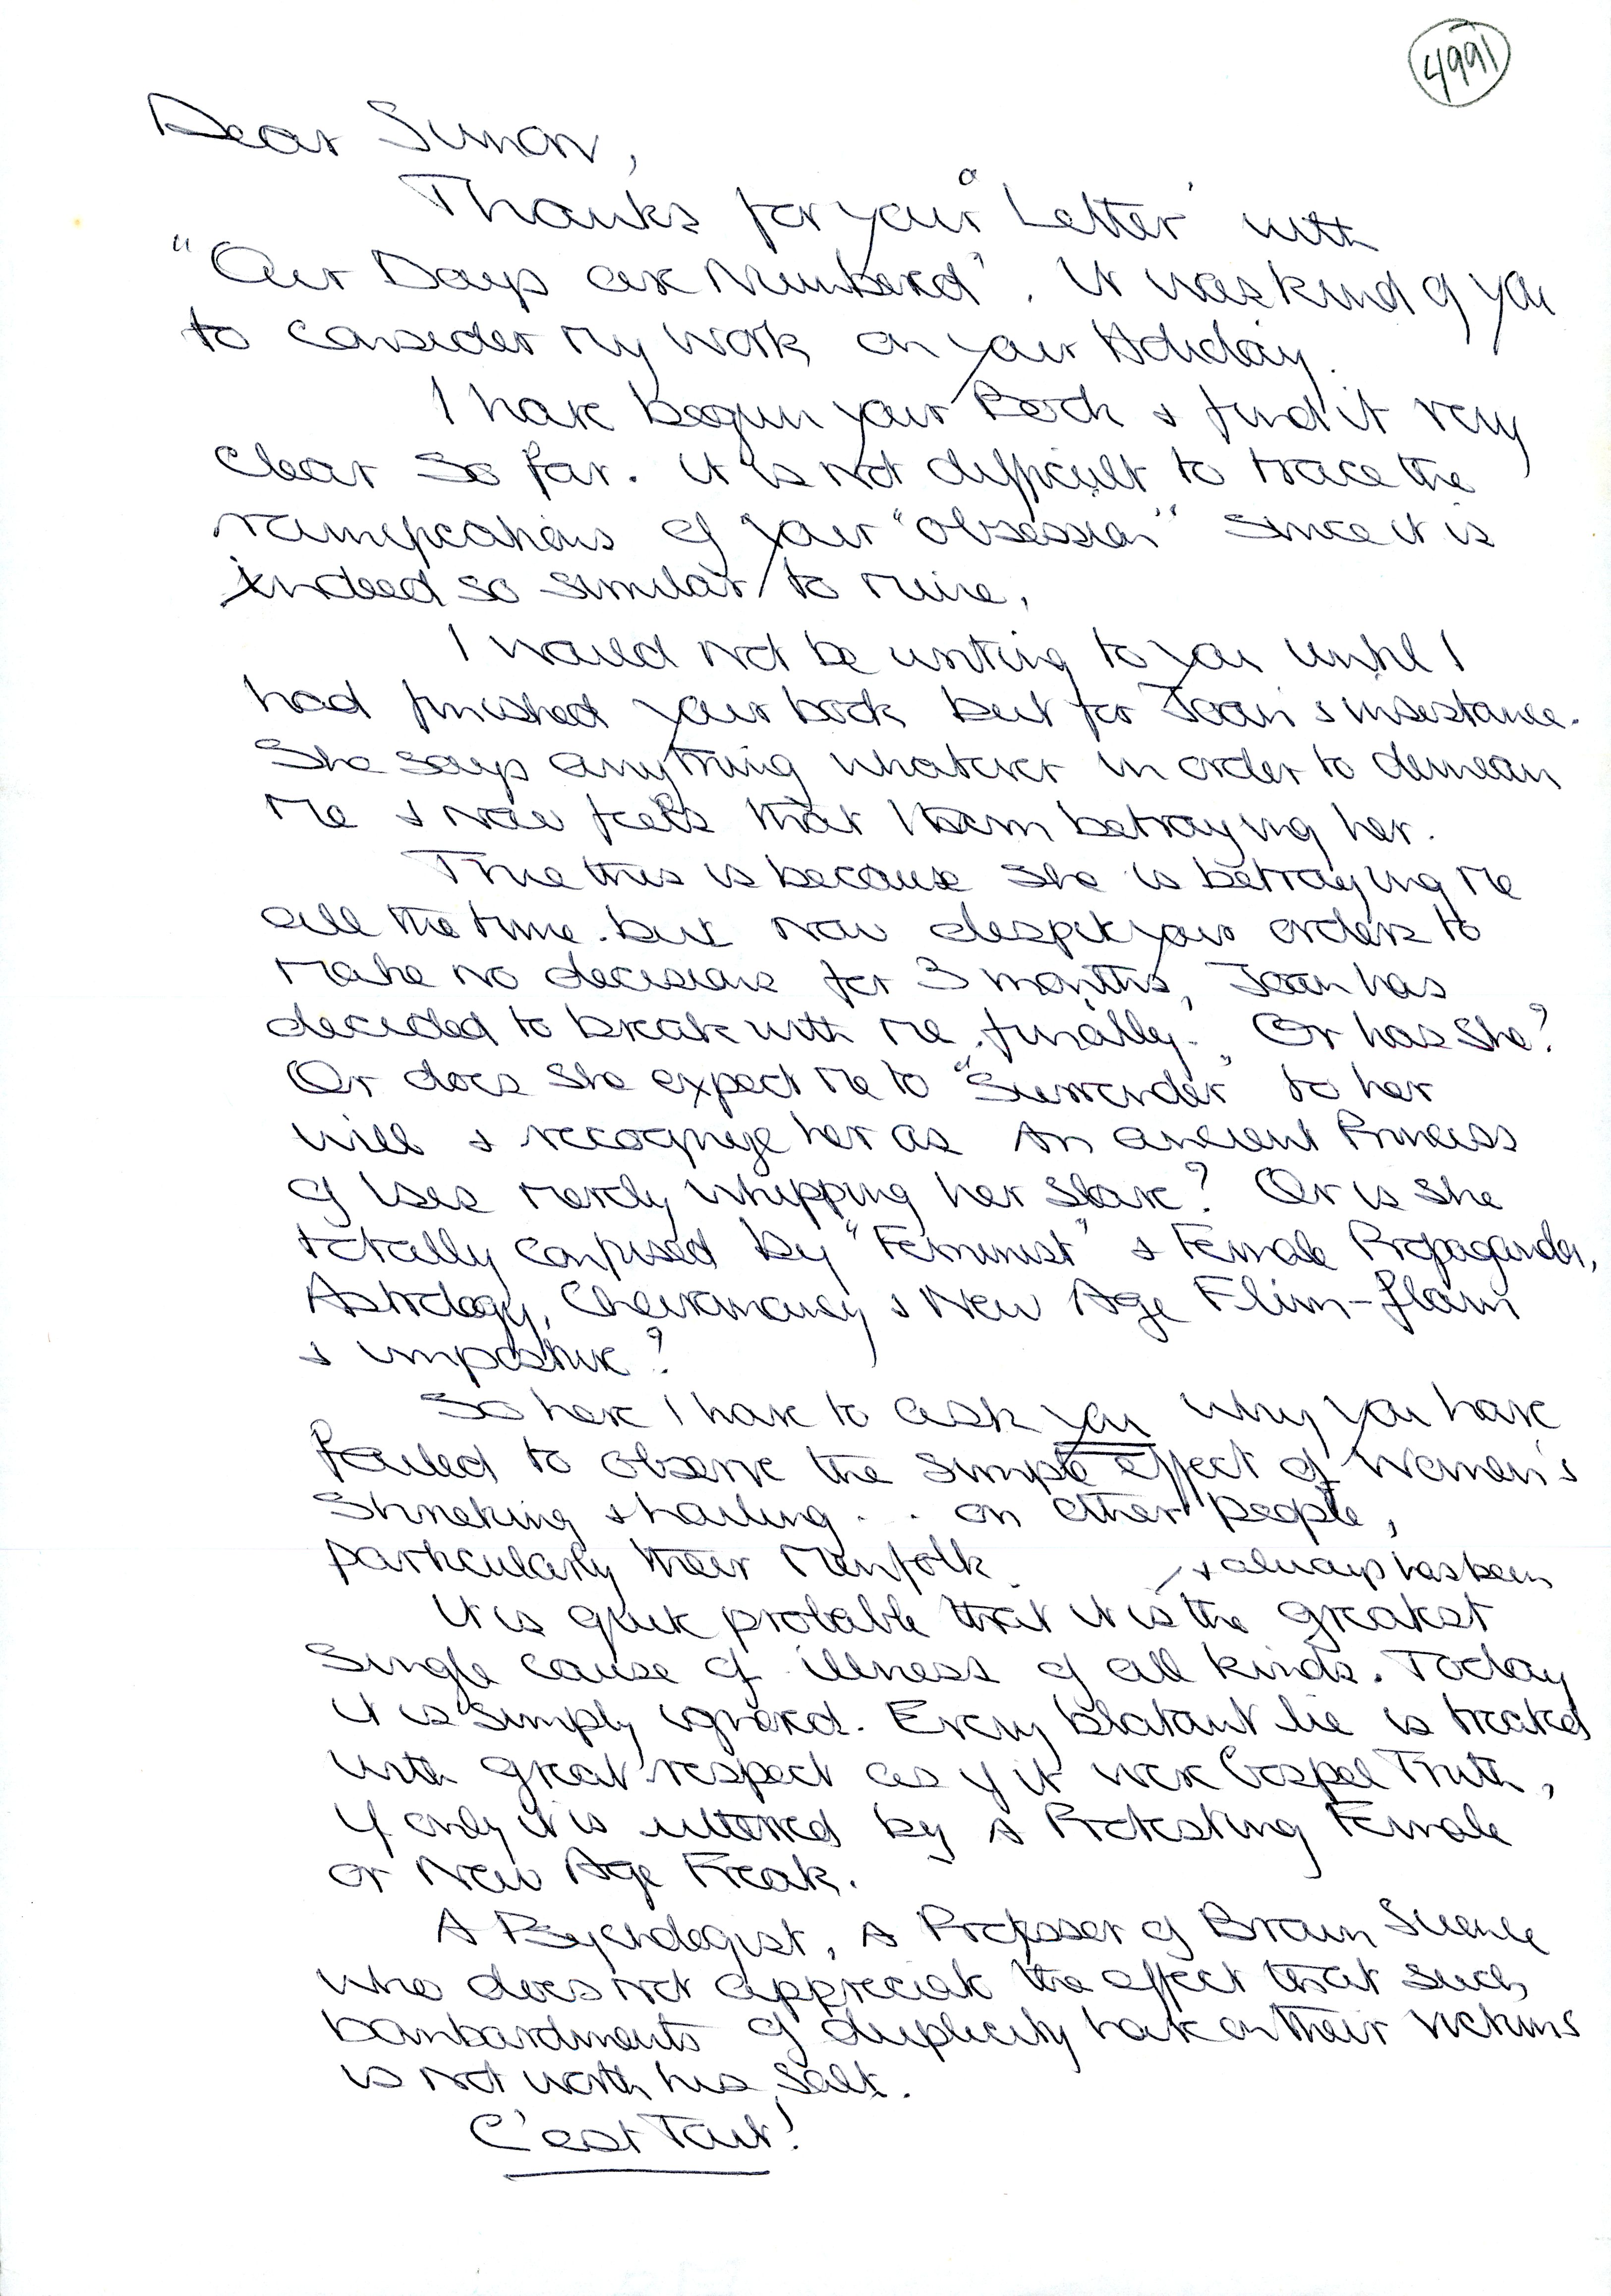 4991
Dear Simon,
Thanks for your "Letter" with
"Our Days are Numbered". It was kind of you
to consider my work on your Holiday.
I have begun your Book & find it very
clear so far. It is not difficult to trace the
ramifications of your "obsession" since it is
indeed so similar to mine.
I would not be writing to you until I
had finished your book but for Joan's insistance.
She says anything whatever in order to demean
me & now feels that I am betraying her.
True this is because she is betraying me
all the time. but now despite your orders to
make no decisions for 3 months, Joan has
decided to break with me, finally. Or has she?
Or does she expect me to "Surrender" to her
will & recognize her as an ancient Princess
of Isis merely whipping her slave? Or is she
totally confused by "Feminist" & Female Propaganda,
Astrology, Cheiromancy & New Age Flim-flam
& imposture?
So here I have to ask you why you have
failed to observe the simple effect of Women's
Shrieking & hailing . . on other people,
particularly their Menfolk.
& always has been
It is quite probable that it is the greatest
single cause of illness of all kinds. Today
it is simply ignored. Every blatant lie is treated
with great respect as if it were Gospel Truth,
if only it is uttered by a Protesting Female
or New Age Freak.
A Psychologist, a Professor of Brain Science
who does not appreciate the effect that such
bombardments of duplicity have on their victims
is not worth his salt.
C'est Tout!